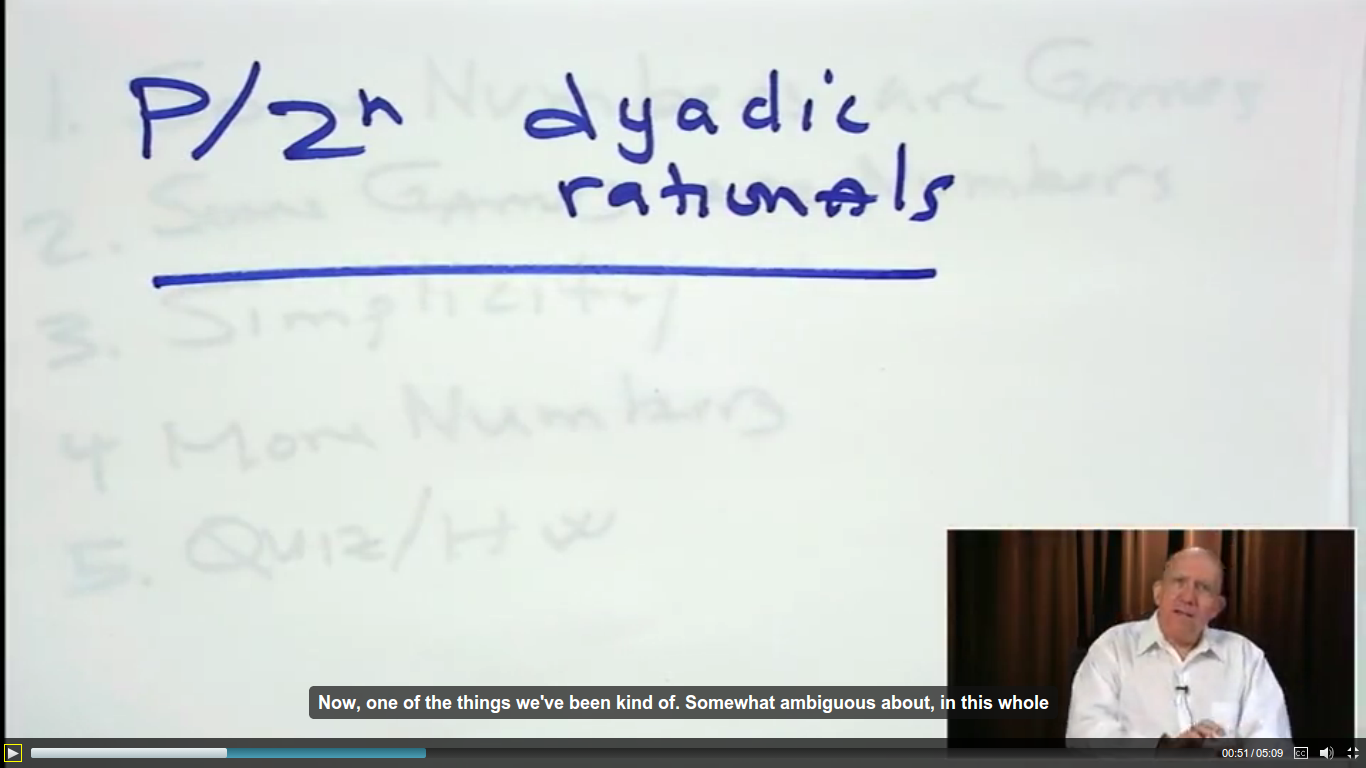 P/2ⁿ dyadic
rationals
1. Some Numbers are Games
2. Some Games are Numbers
3. Simplicity
4 More Numbers
5. Quiz/HW
Now, one of the things we've been kind of. Somewhat ambiguous about, in this whole
00:51/05:09
CC